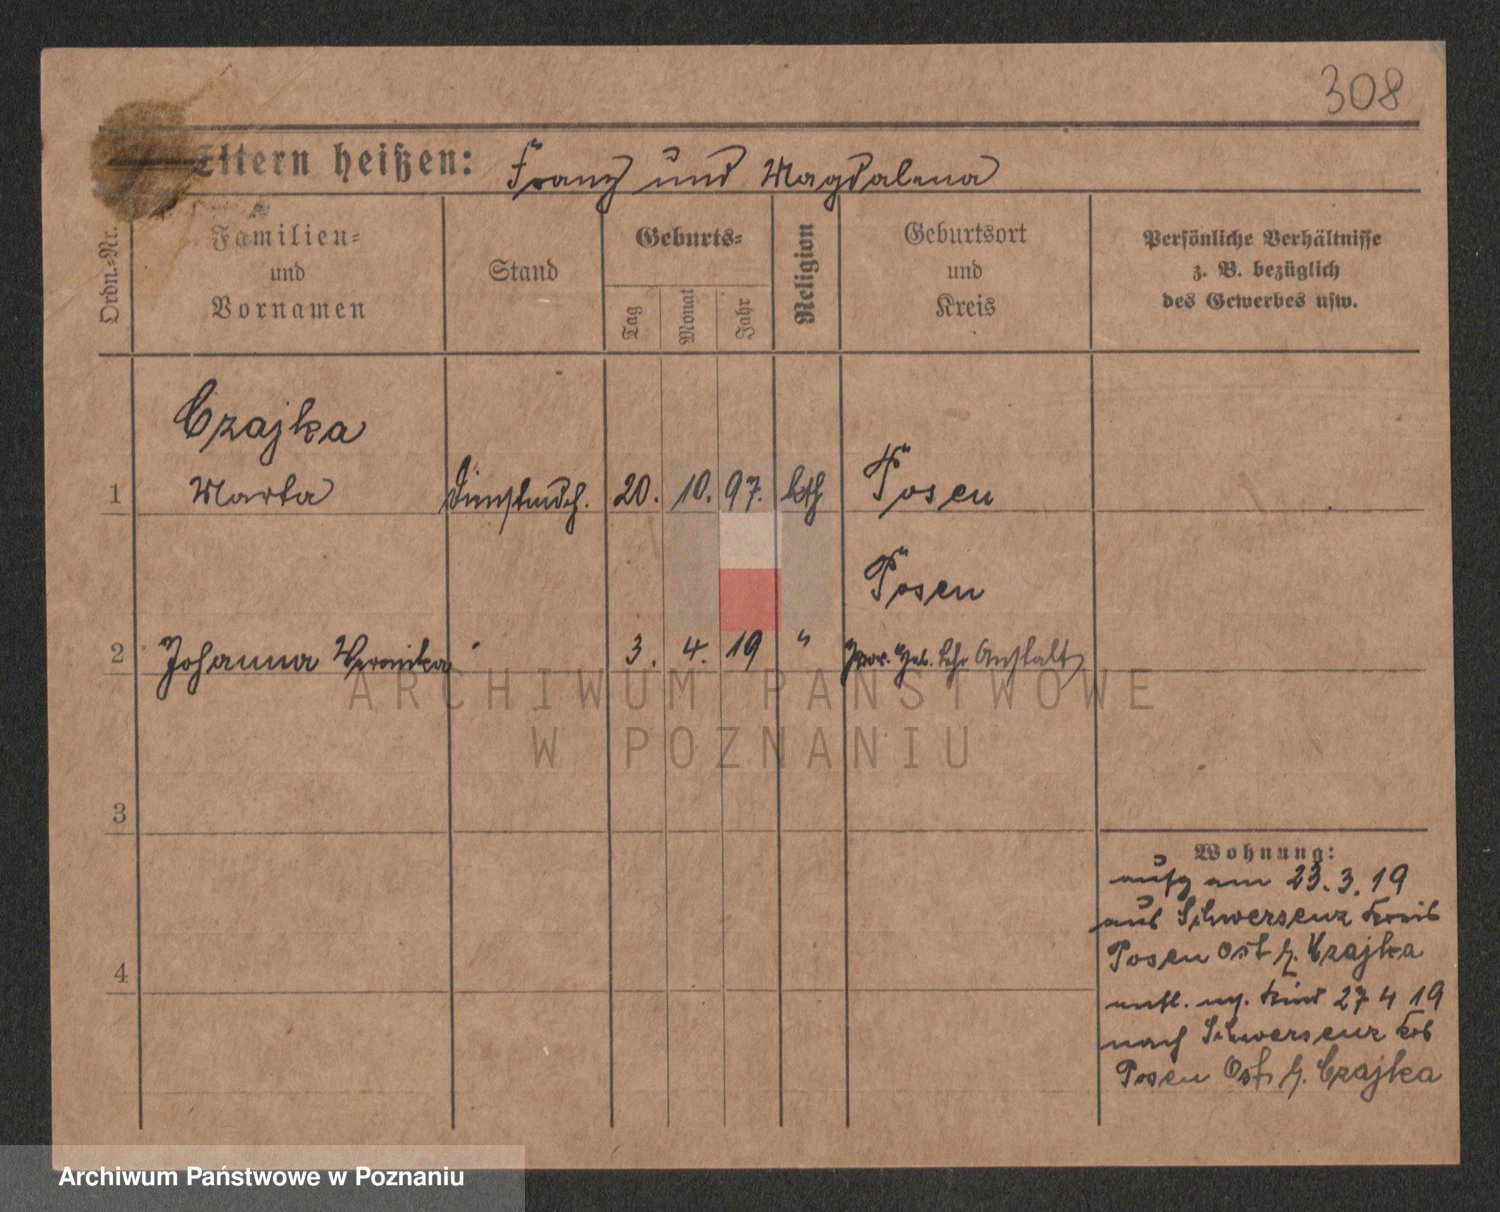 308
Eltern heißen: Franz und Magdalena
Ordn.-Nr.
Familien-
und
Vornamen
Stand
Geburts-
Tag
Monat
Jahr
Religion
Geburtsort
und
Kreis
Persönliche Verhältnisse
z. B. bezüglich
des Gewerbes usw.
Czajka
1 Marta Dienstmdch. 20. 10. 97. kth Posen
Posen
2 Johanna Veronika 3. 4. 19 " Prov. Heb. Lehr Anstalt
3
4
Wohnung:
aufg am 23.3.19
aus Schwersenz Kreis
Posen Ost b. Czajka
entl. m. Kind 27 4 19
nach Schwersenz Krs
Posen Ost b. Czajka
ARCHIWUM PAŃSTWOWE
W POZNANIU
Archiwum Państwowe w Poznaniu